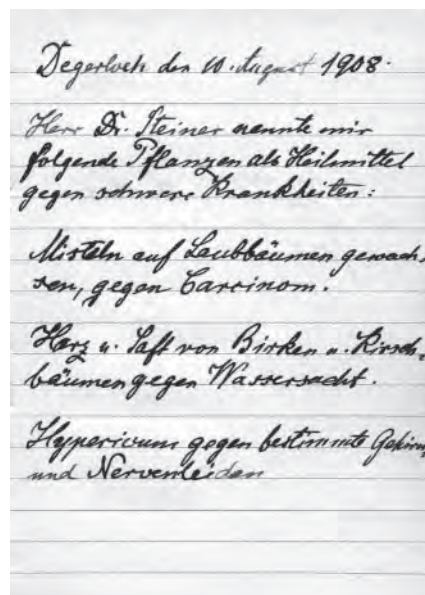 Degerloch den 10. August 1908.
Herr Dr. Steiner nannte mir
folgende Pflanzen als Heilmittel
gegen schwere Krankheiten:
Misteln auf Laubbäumen gewach-
sen, gegen Carcinom.
Harz u. Saft von Birken u. Kirsch-
bäumen gegen Wassersucht.
Hypericum gegen bestimmte Gehirn-
und Nervenleiden